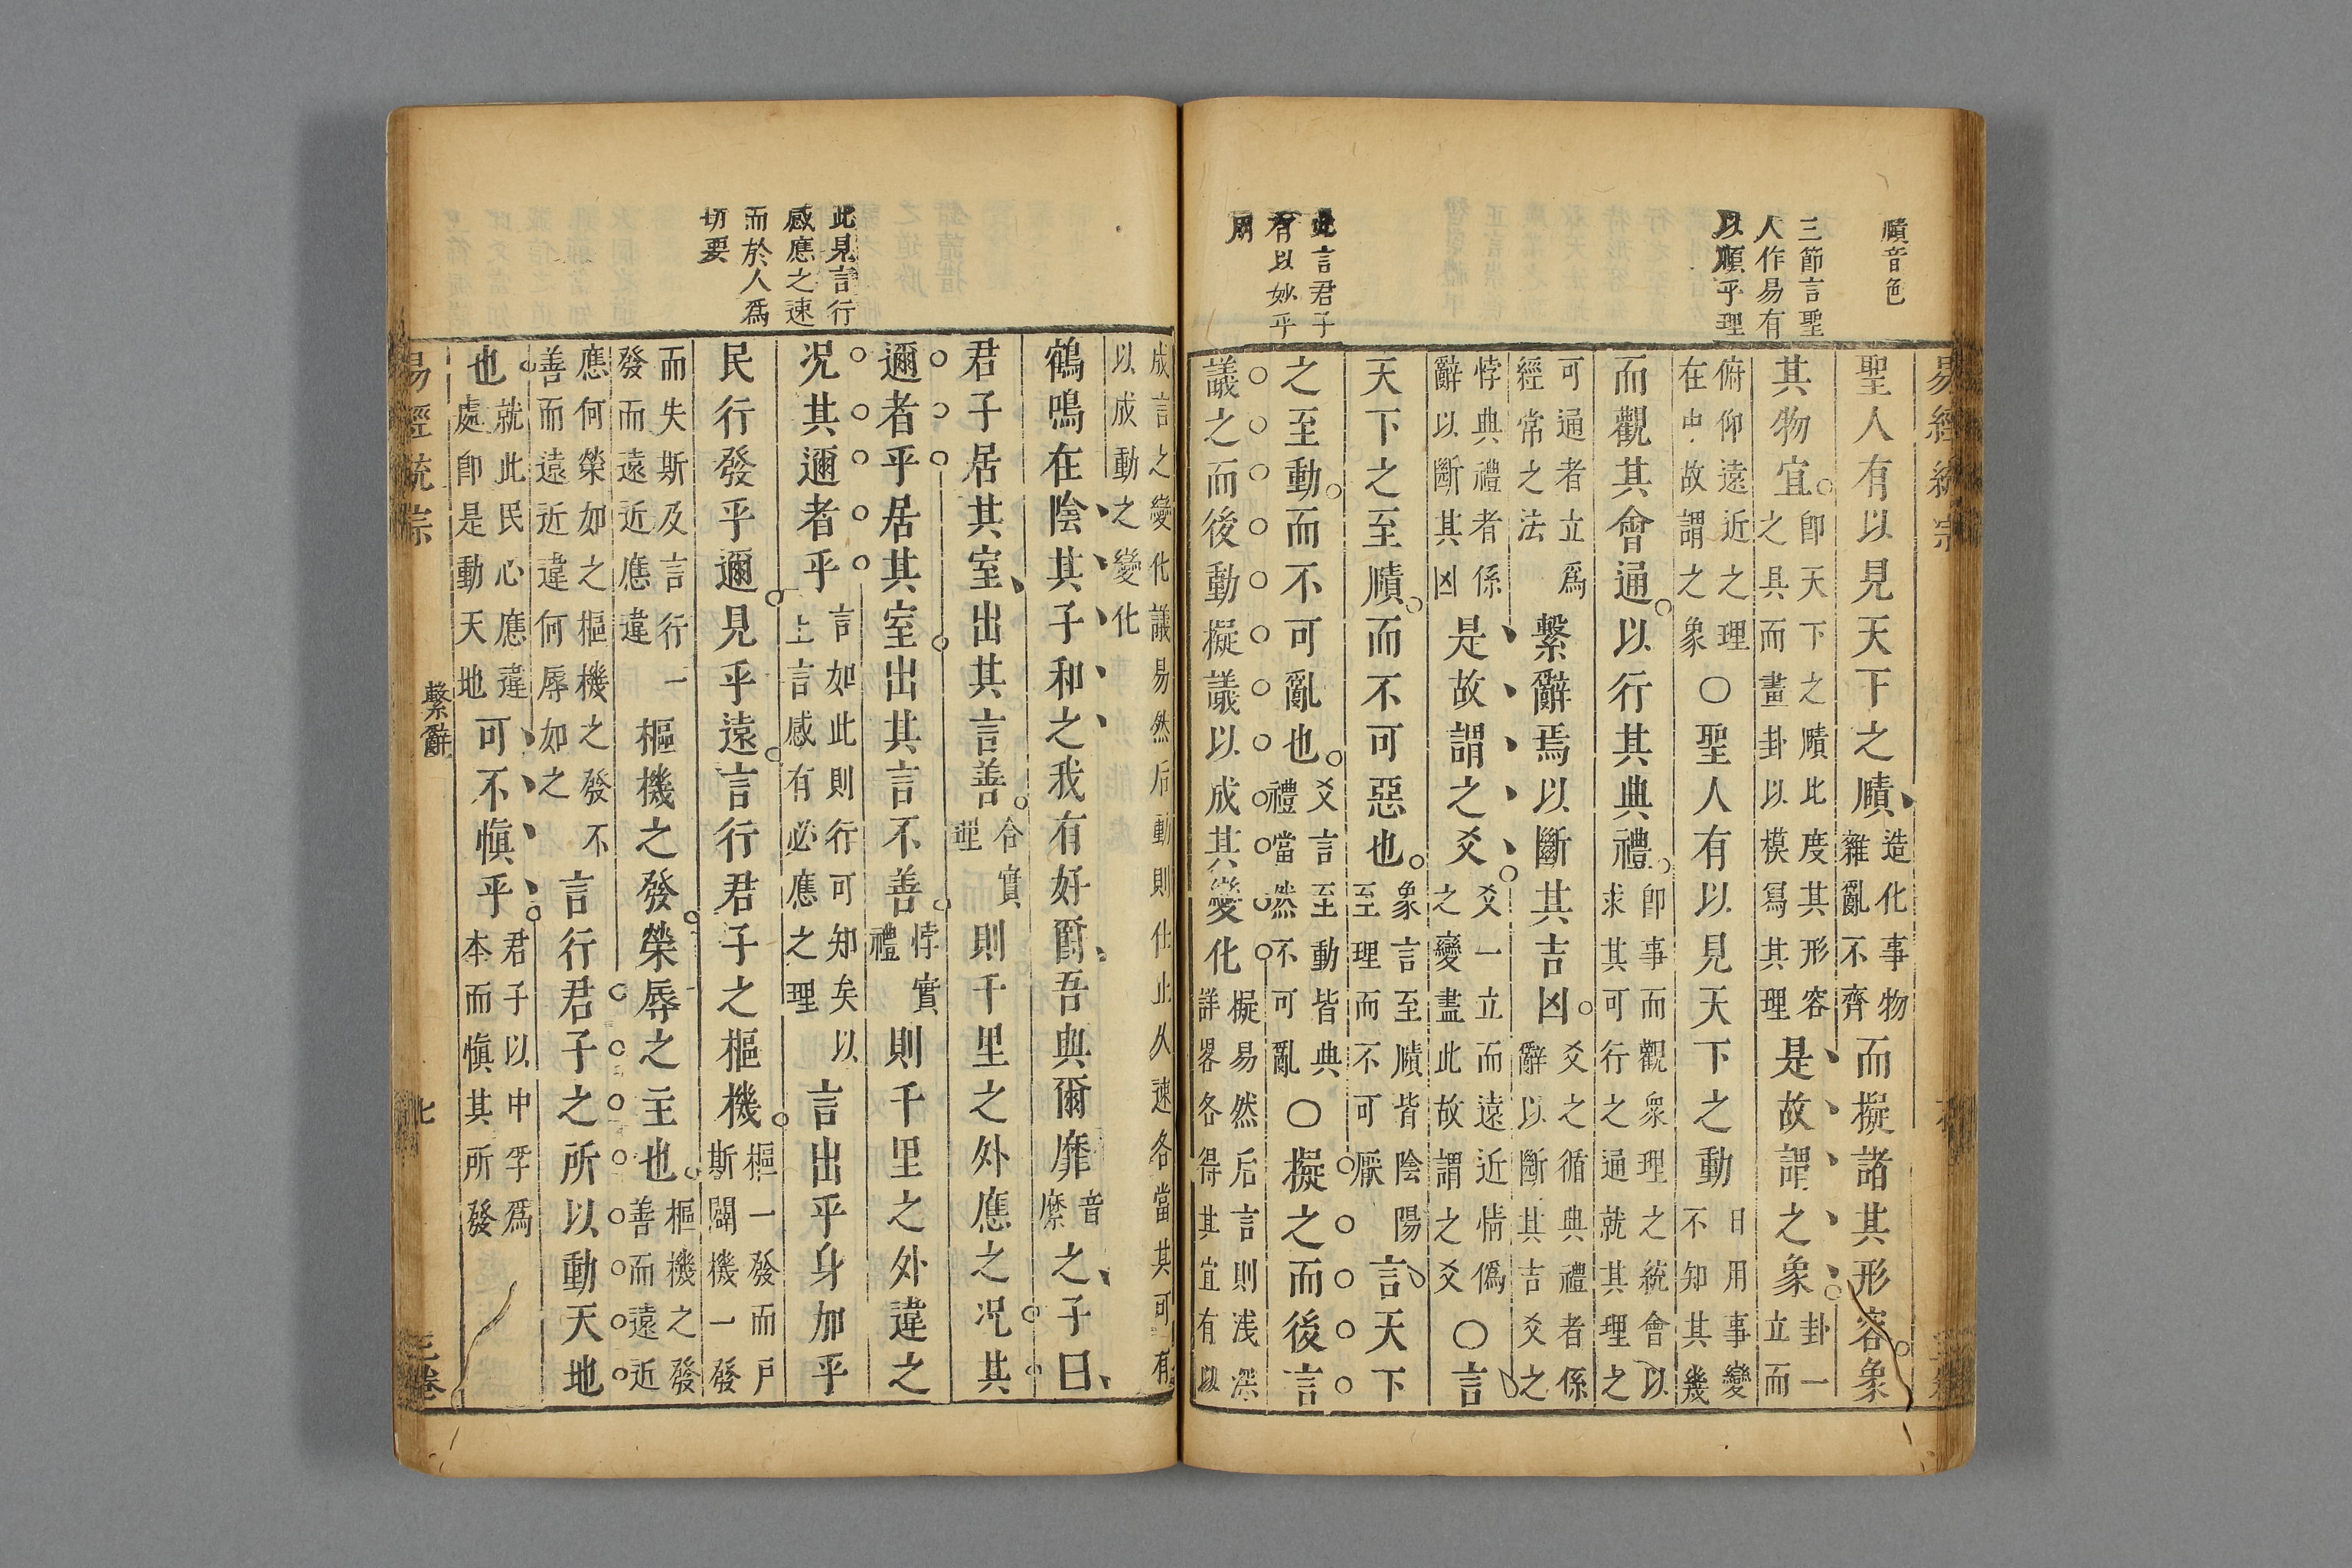 賾音色
三節言聖
人作易有
以順乎理
此言君子
有以妙乎
用
聖人有以見天下之賾造化事物雜亂不齊而擬諸其形容象
其物宜卽天下之賾此度其形容之具而畫卦以模寫其理是故謂之象卦一立而
俯仰遠近之理在中故謂之象○聖人有以見天下之動日用事變不知其幾
而觀其會通以行其典禮卽事而觀衆理之統會以求其可行之通就其理之
可通者立爲經常之法繫辭焉以斷其吉凶爻之循典禮者係辭以斷其吉爻之
悖典禮者係辭以斷其凶是故謂之爻爻一立而遠近情僞之變盡此故謂之爻○言
天下之至賾而不可惡也象言至賾皆陰陽至理而不可厭言天下
之至動而不可亂也爻言至動皆典禮當然不可亂○擬之而後言
議之而後動擬議以成其變化擬易然后言則浅深詳畧各得其宜有以
此見言行
感應之速
而於人爲
切要
成言之變化議易然后動則仕止久速各當其可有以成動之變化
鶴鳴在陰其子和之我有好爵吾與爾靡音縻之子曰
君子居其室出其言善合實理則千里之外應之况其
邇者乎居其室出其言不善悖實禮則千里之外違之
况其邇者乎言如此則行可知矣上言感有必應之理以言出乎身加乎
民行發乎邇見乎遠言行君子之樞機樞一發而戶斯闢機一發
而失斯及言行一發而遠近應違樞機之發榮辱之主也樞機之發善而遠近
應何榮如之樞機之發不善而遠近違何辱如之言行君子之所以動天地
也就此民心應違處卽是動天地可不愼乎君子以中孚爲本而愼其所發
易經統宗 繫辭 七 三卷